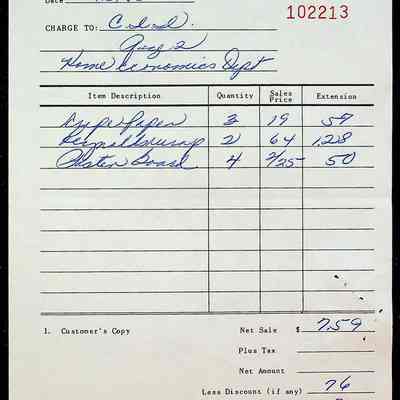 Date
102213
CHARGE TO:
Home Economics Dept
Item Description Quantity Sales Price Extension
Paper 3 19 59
Reynolds wrap 2 64 1.28
Poster Board 4 2/25 50
1. Customer's Copy Net Sale $ 7.59
Plus Tax
Net Amount
Less Discount (if any) 76